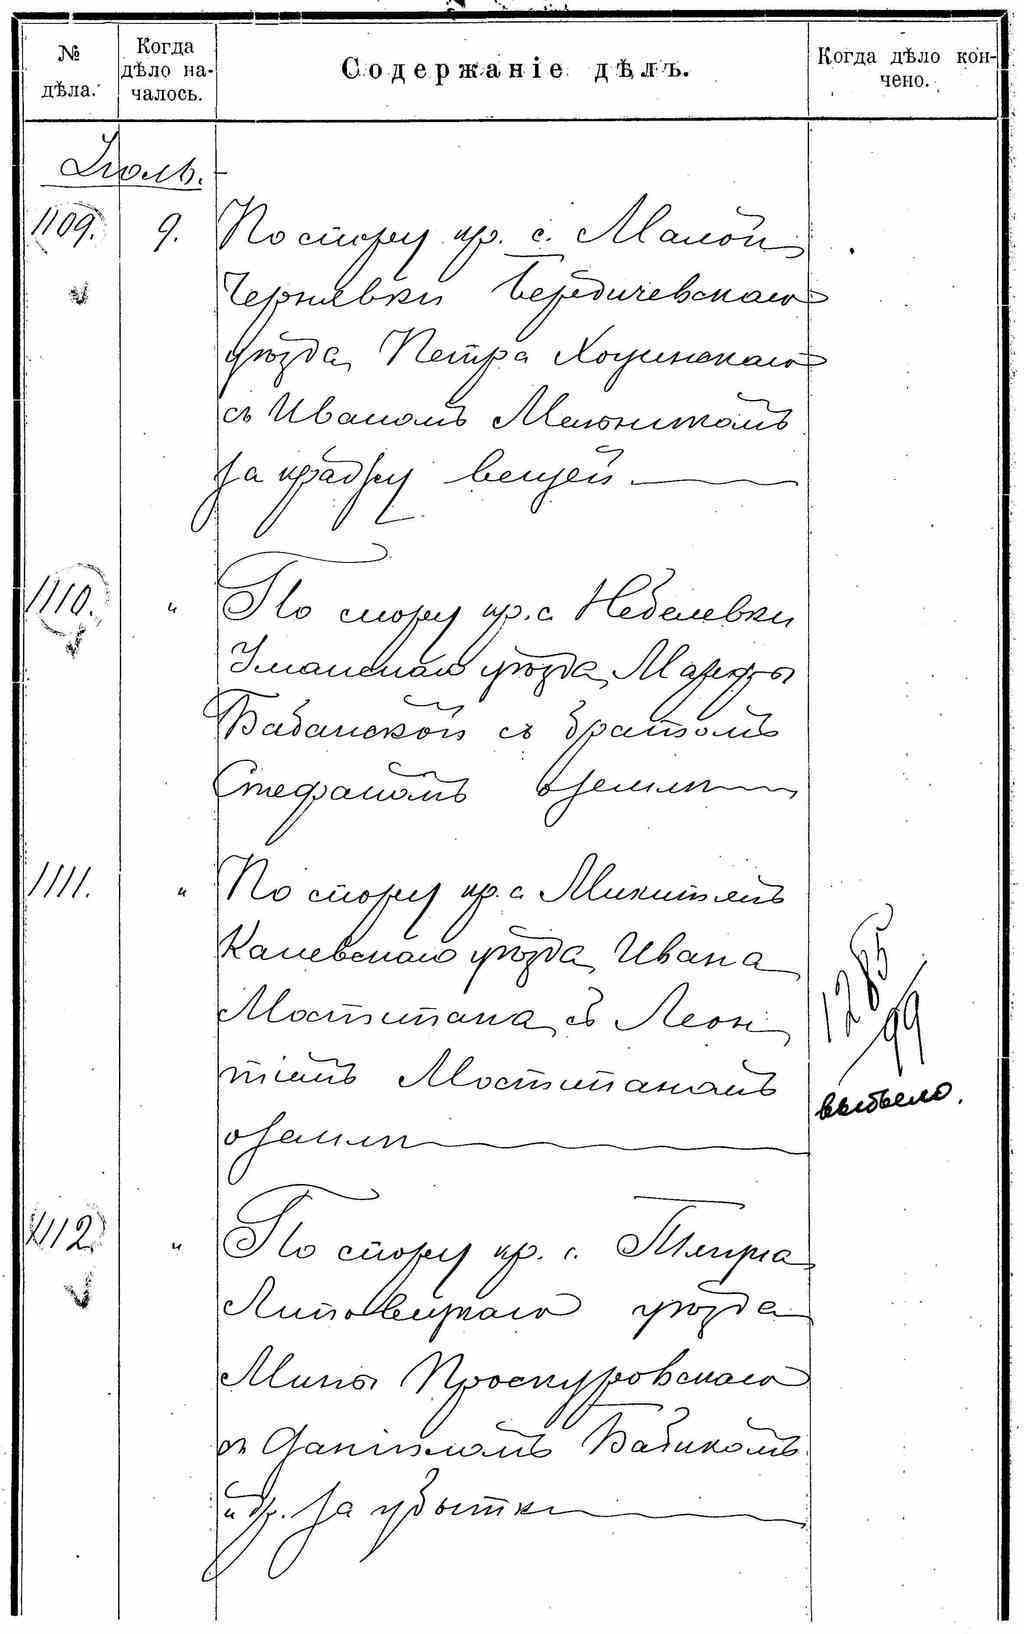 № дѣла.
Когда дѣло на-
чалось.
Содержаніе дѣлъ.
Когда дѣло кон-
чено.
Іюль.
1109. 9. По спору кр. с. Малой
Чернявки Бердичевскаго
уѣзда Петра Хоцинскаго
съ Иваномъ Мельникомъ
за кражу вещей
1110. " По спору кр. с. Небелевки
Уманскаго уѣзда Марфы
Бабанской съ братомъ
Стефаномъ о землѣ
1111. " По спору кр. с. Микитянъ
Каневскаго уѣзда Ивана
Мостипана съ Леон
тіемъ Мостипаномъ
о землѣ
1285/99
выбыло.
1112. " По спору кр. с.
Липовецкаго уѣзда
Мины Проскуровскаго
съ Даніиломъ Бабикомъ
и др. за убытки